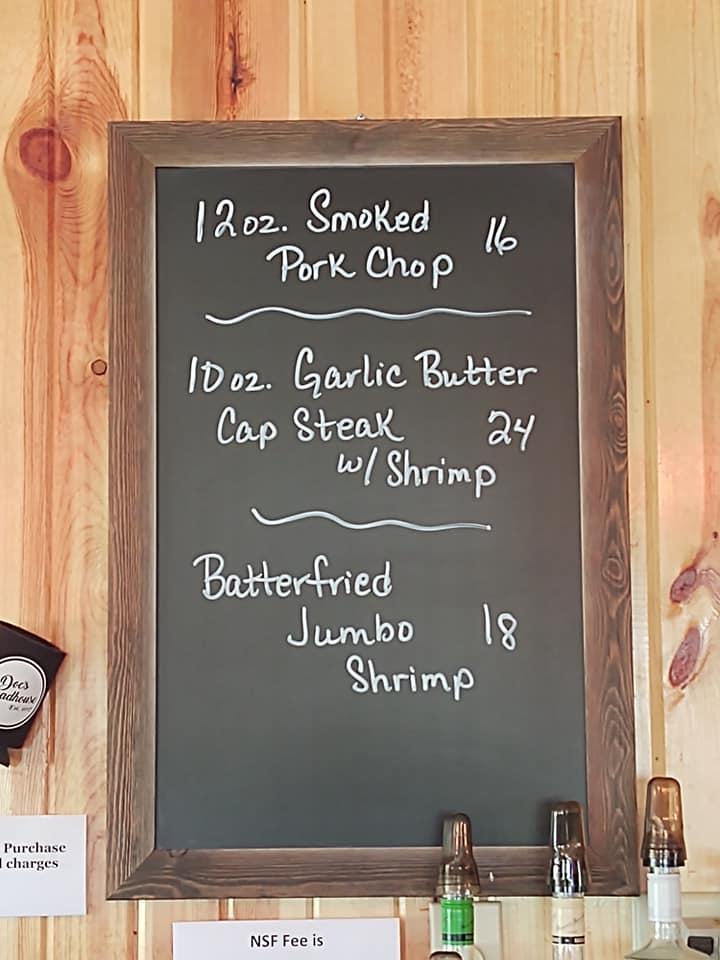 12 oz. Smoked 16
Pork Chop
10 oz. Garlic Butter
Cap Steak 24
w/ Shrimp
Batterfried
Jumbo 18
Shrimp
Doc's
adhouse
Purchase
charges
NSF Fee is